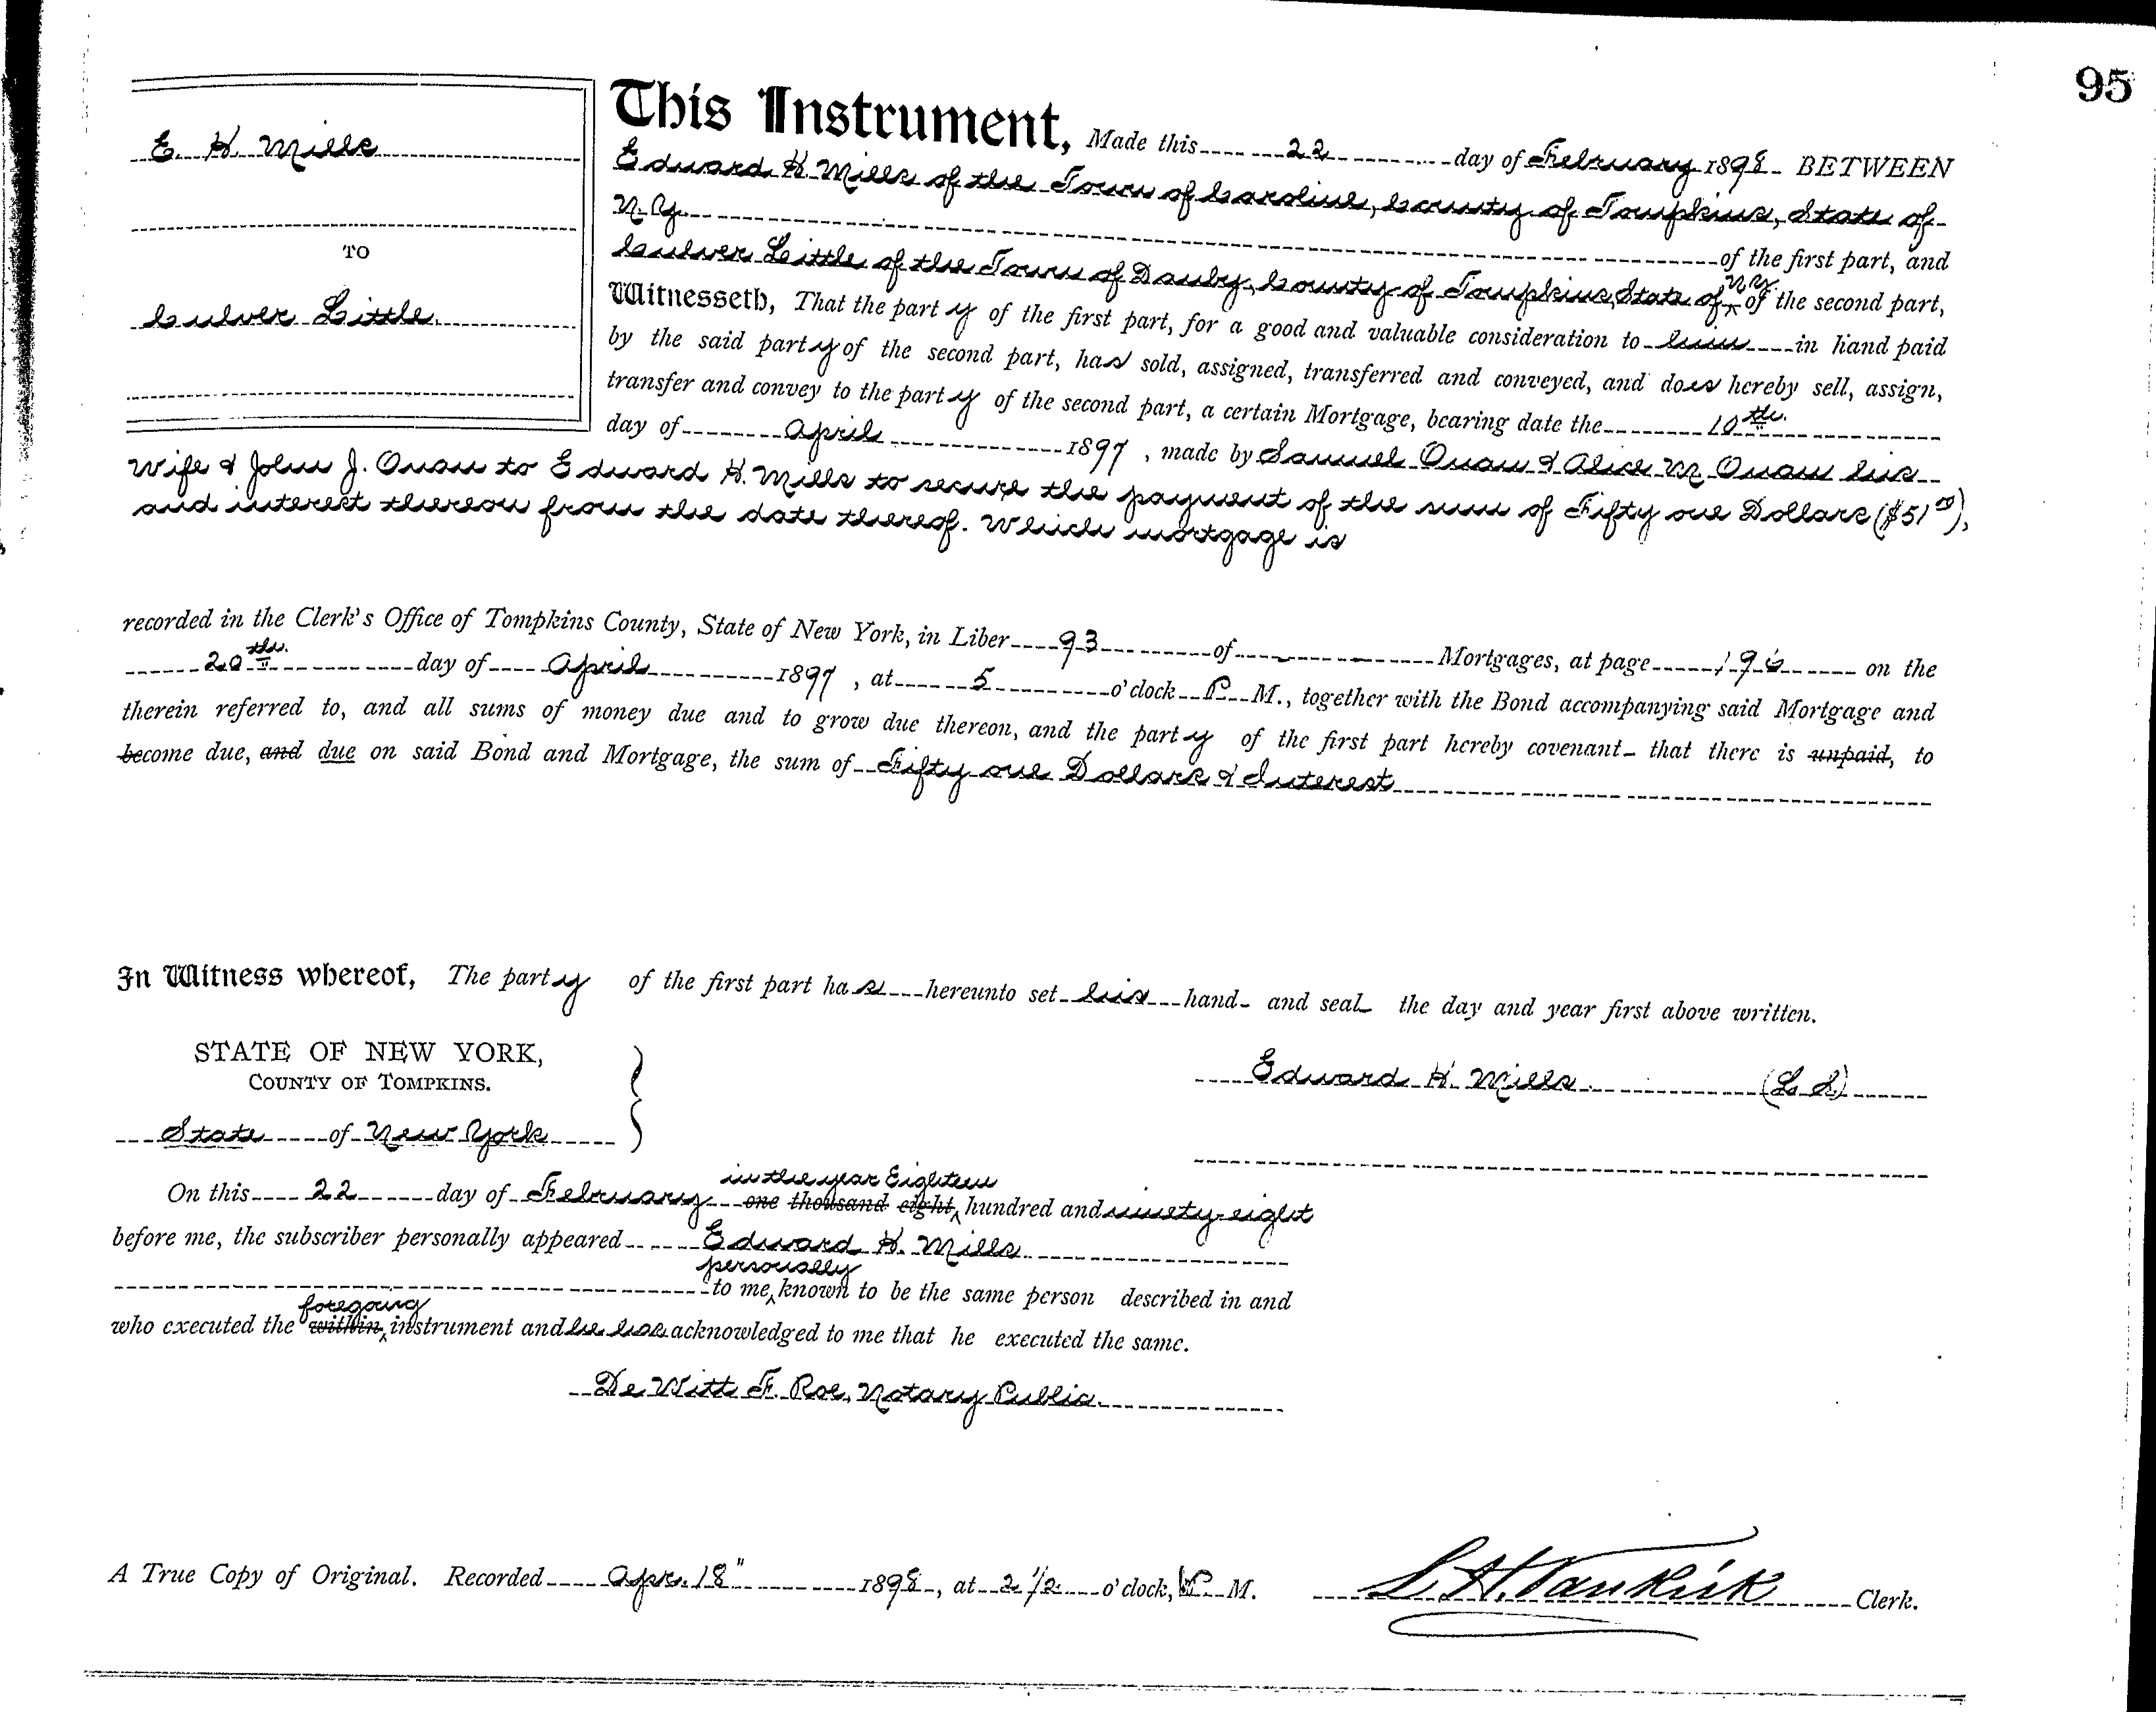 95
E. H. Mills
TO
Culver Little.
This Instrument, Made this 22 day of February 1898 BETWEEN
Edward H. Mills of the Town of Caroline, County of Tompkins, State of
N.Y. of the first part, and
Culver Little of the Town of Danby, County of Tompkins, State of N.Y. of the second part,
Witnesseth, That the party of the first part, for a good and valuable consideration to him in hand paid
by the said party of the second part, has sold, assigned, transferred and conveyed, and does hereby sell, assign,
transfer and convey to the party of the second part, a certain Mortgage, bearing date the 10th
day of April 1897, made by Samuel Quan & Alice M. Quan his
Wife & John J. Quan to Edward H. Mills to secure the payment of the sum of Fifty one Dollars ($51 00),
and interest thereon from the date thereof. Which mortgage is
recorded in the Clerk's Office of Tompkins County, State of New York, in Liber 93 of Mortgages, at page 196 on the
20th day of April 1897, at 5 o'clock P. M., together with the Bond accompanying said Mortgage and
therein referred to, and all sums of money due and to grow due thereon, and the party of the first part hereby covenant that there is unpaid, to
become due, and due on said Bond and Mortgage, the sum of Fifty one Dollars & Interest
In Witness whereof, The party of the first part has hereunto set his hand and seal the day and year first above written.
Edward H. Mills (L. S)
STATE OF NEW YORK,
COUNTY OF TOMPKINS.
State of New York
in the year Eighteen
On this 22 day of February one thousand eight hundred and ninety-eight
before me, the subscriber personally appeared Edward H. Mills
personally
to me known to be the same person described in and
foregoing
who executed the within instrument and he has acknowledged to me that he executed the same.
De Witt F. Roe, Notary Public.
A True Copy of Original. Recorded Apr. 18" 1898, at 2 1/2 o'clock, P. M. L. H. VanKirk Clerk.